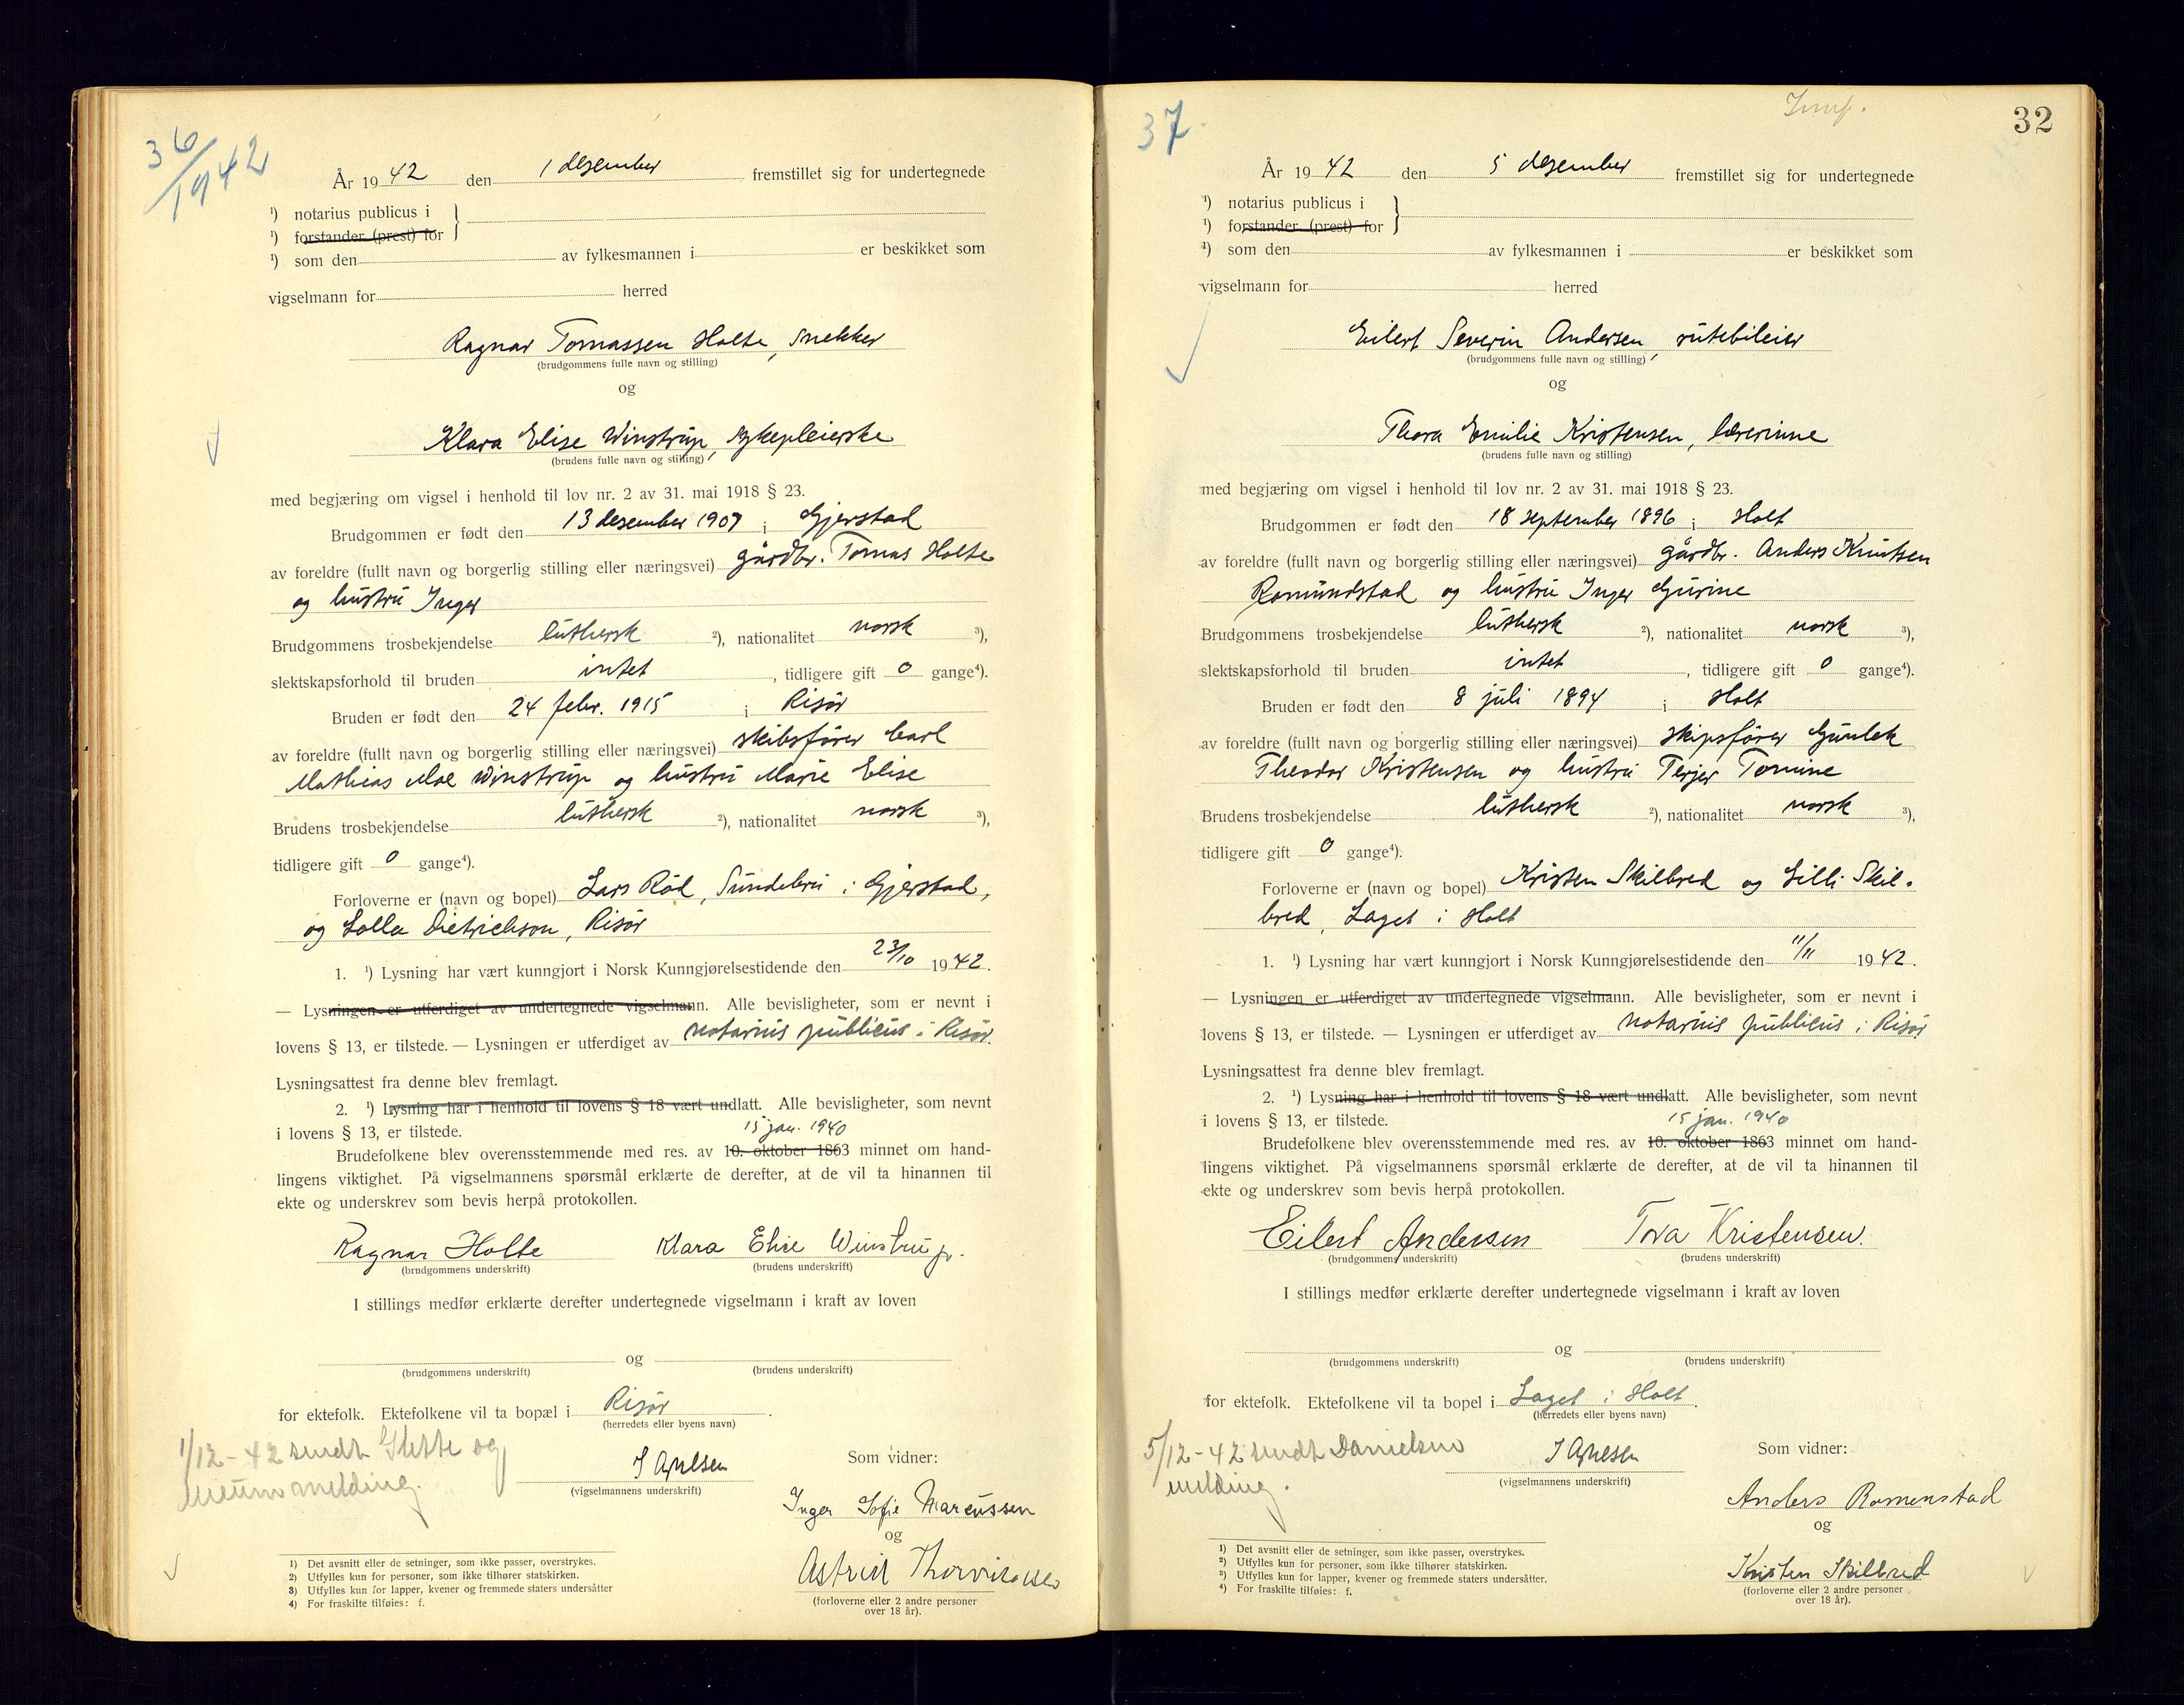 36/1942
År 19 42 den 1 desember fremstillet sig for undertegnede
¹) notarius publicus i
¹) forstander (prest) for
¹) som den av fylkesmannen i er beskikket som
vigselmann for herred
Ragnar Tomassen Holte, snekker
(brudgommens fulle navn og stilling)
og
Klara Elise Winstrup, sykepleierske
(brudens fulle navn og stilling)
med begjæring om vigsel i henhold til lov nr. 2 av 31. mai 1918 § 23.
Brudgommen er født den 13 desember 1907 i Gjerstad
av foreldre (fullt navn og borgerlig stilling eller næringsvei) gårdbr. Tomas Holte
og hustru Inger
Brudgommens trosbekjendelse luthersk ²), nationalitet norsk ³),
slektskapsforhold til bruden intet, tidligere gift 0 gange⁴).
Bruden er født den 24 febr. 1915 i Risør
av foreldre (fullt navn og borgerlig stilling eller næringsvei) skibsfører Carl
Mathias Moe Winstrup og hustru Marie Elise
Brudens trosbekjendelse luthersk ²), nationalitet norsk ³),
tidligere gift 0 gange⁴).
Forloverne er (navn og bopel) Lars Röd, Sundebru i Gjerstad,
og Lolla Dietrichson, Risør
1. ¹) Lysning har vært kunngjort i Norsk Kunngjørelsestidende den 23/10 1942.
— Lysningen er utferdiget av undertegnede vigselmann. Alle bevisligheter, som er nevnt i
lovens § 13, er tilstede. — Lysningen er utferdiget av notarius publicus i Risør.
Lysningsattest fra denne blev fremlagt.
2. ¹) Lysning har i henhold til lovens § 18 vært undlatt. Alle bevisligheter, som nevnt
i lovens § 13, er tilstede.
15 jan. 1940
Brudefolkene blev overensstemmende med res. av 10. oktober 1863 minnet om hand-
lingens viktighet. På vigselmannens spørsmål erklærte de derefter, at de vil ta hinannen til
ekte og underskrev som bevis herpå protokollen.
Ragnar Holte Klara Elise Winstrup.
(brudgommens underskrift) (brudens underskrift)
I stillings medfør erklærte derefter undertegnede vigselmann i kraft av loven
og
(brudgommens underskrift) (brudens underskrift)
for ektefolk. Ektefolkene vil ta bopæl i Risør.
(herredets eller byens navn)
1/12-42 sendt og
melding.
(vigselmannens underskrift)
Som vidner:
Inger Sofie Marcussen
og
Astrid
(forloverne eller 2 andre personer
over 18 år).
1) Det avsnitt eller de setninger, som ikke passer, overstrykes.
2) Utfylles kun for personer, som ikke tilhører statskirken.
3) Utfylles kun for lapper, kvener og fremmede staters undersåtter
4) For fraskilte tilføies: f.
37.
32
År 19 42 den 5 desember fremstillet sig for undertegnede
¹) notarius publicus i
¹) forstander (prest) for
¹) som den av fylkesmannen i er beskikket som
vigselmann for herred
Eilert Severin Andersen, rutebileier
(brudgommens fulle navn og stilling)
og
Thora Emilie Kristensen, lærerinne
(brudens fulle navn og stilling)
med begjæring om vigsel i henhold til lov nr. 2 av 31. mai 1918 § 23.
Brudgommen er født den 18 september 1896 i Holt
av foreldre (fullt navn og borgerlig stilling eller næringsvei) gårdbr. Anders Knutsen
Romundstad og hustru Inger Gurine
Brudgommens trosbekjendelse luthersk ²), nationalitet norsk ³),
slektskapsforhold til bruden intet, tidligere gift 0 gange⁴).
Bruden er født den 8 juli 1894 i Holt
av foreldre (fullt navn og borgerlig stilling eller næringsvei) skipsfører Gunlek
Theodor Kristensen og hustru Terjer Tomine
Brudens trosbekjendelse luthersk ²), nationalitet norsk ³),
tidligere gift 0 gange⁴).
Forloverne er (navn og bopel) Kristen Skilbred og Lilli Skil-
bred, Laget i Holt
1. ¹) Lysning har vært kunngjort i Norsk Kunngjørelsestidende den 11/11 1942.
— Lysningen er utferdiget av undertegnede vigselmann. Alle bevisligheter, som er nevnt i
lovens § 13, er tilstede. — Lysningen er utferdiget av notarius publicus i Risør
Lysningsattest fra denne blev fremlagt.
2. ¹) Lysning har i henhold til lovens § 18 vært undlatt. Alle bevisligheter, som nevnt
i lovens § 13, er tilstede.
15 jan. 1940
Brudefolkene blev overensstemmende med res. av 10. oktober 1863 minnet om hand-
lingens viktighet. På vigselmannens spørsmål erklærte de derefter, at de vil ta hinannen til
ekte og underskrev som bevis herpå protokollen.
Eilert Andersen Tora Kristensen.
(brudgommens underskrift) (brudens underskrift)
I stillings medfør erklærte derefter undertegnede vigselmann i kraft av loven
og
(brudgommens underskrift) (brudens underskrift)
for ektefolk. Ektefolkene vil ta bopel i Laget i Holt.
(herredets eller byens navn)
5/12-42 sendt Danielsen
melding.
(vigselmannens underskrift)
Som vidner:
Anders Romenstad
og
Kristen Skilbred
(forloverne eller 2 andre personer
over 18 år).
¹) Det avsnitt eller de setninger, som ikke passer, overstrykes.
²) Utfylles kun for personer, som ikke tilhører statskirken.
³) Utfylles kun for lapper, kvener og fremmede staters undersåtter.
⁴) For fraskilte tilføies: f.